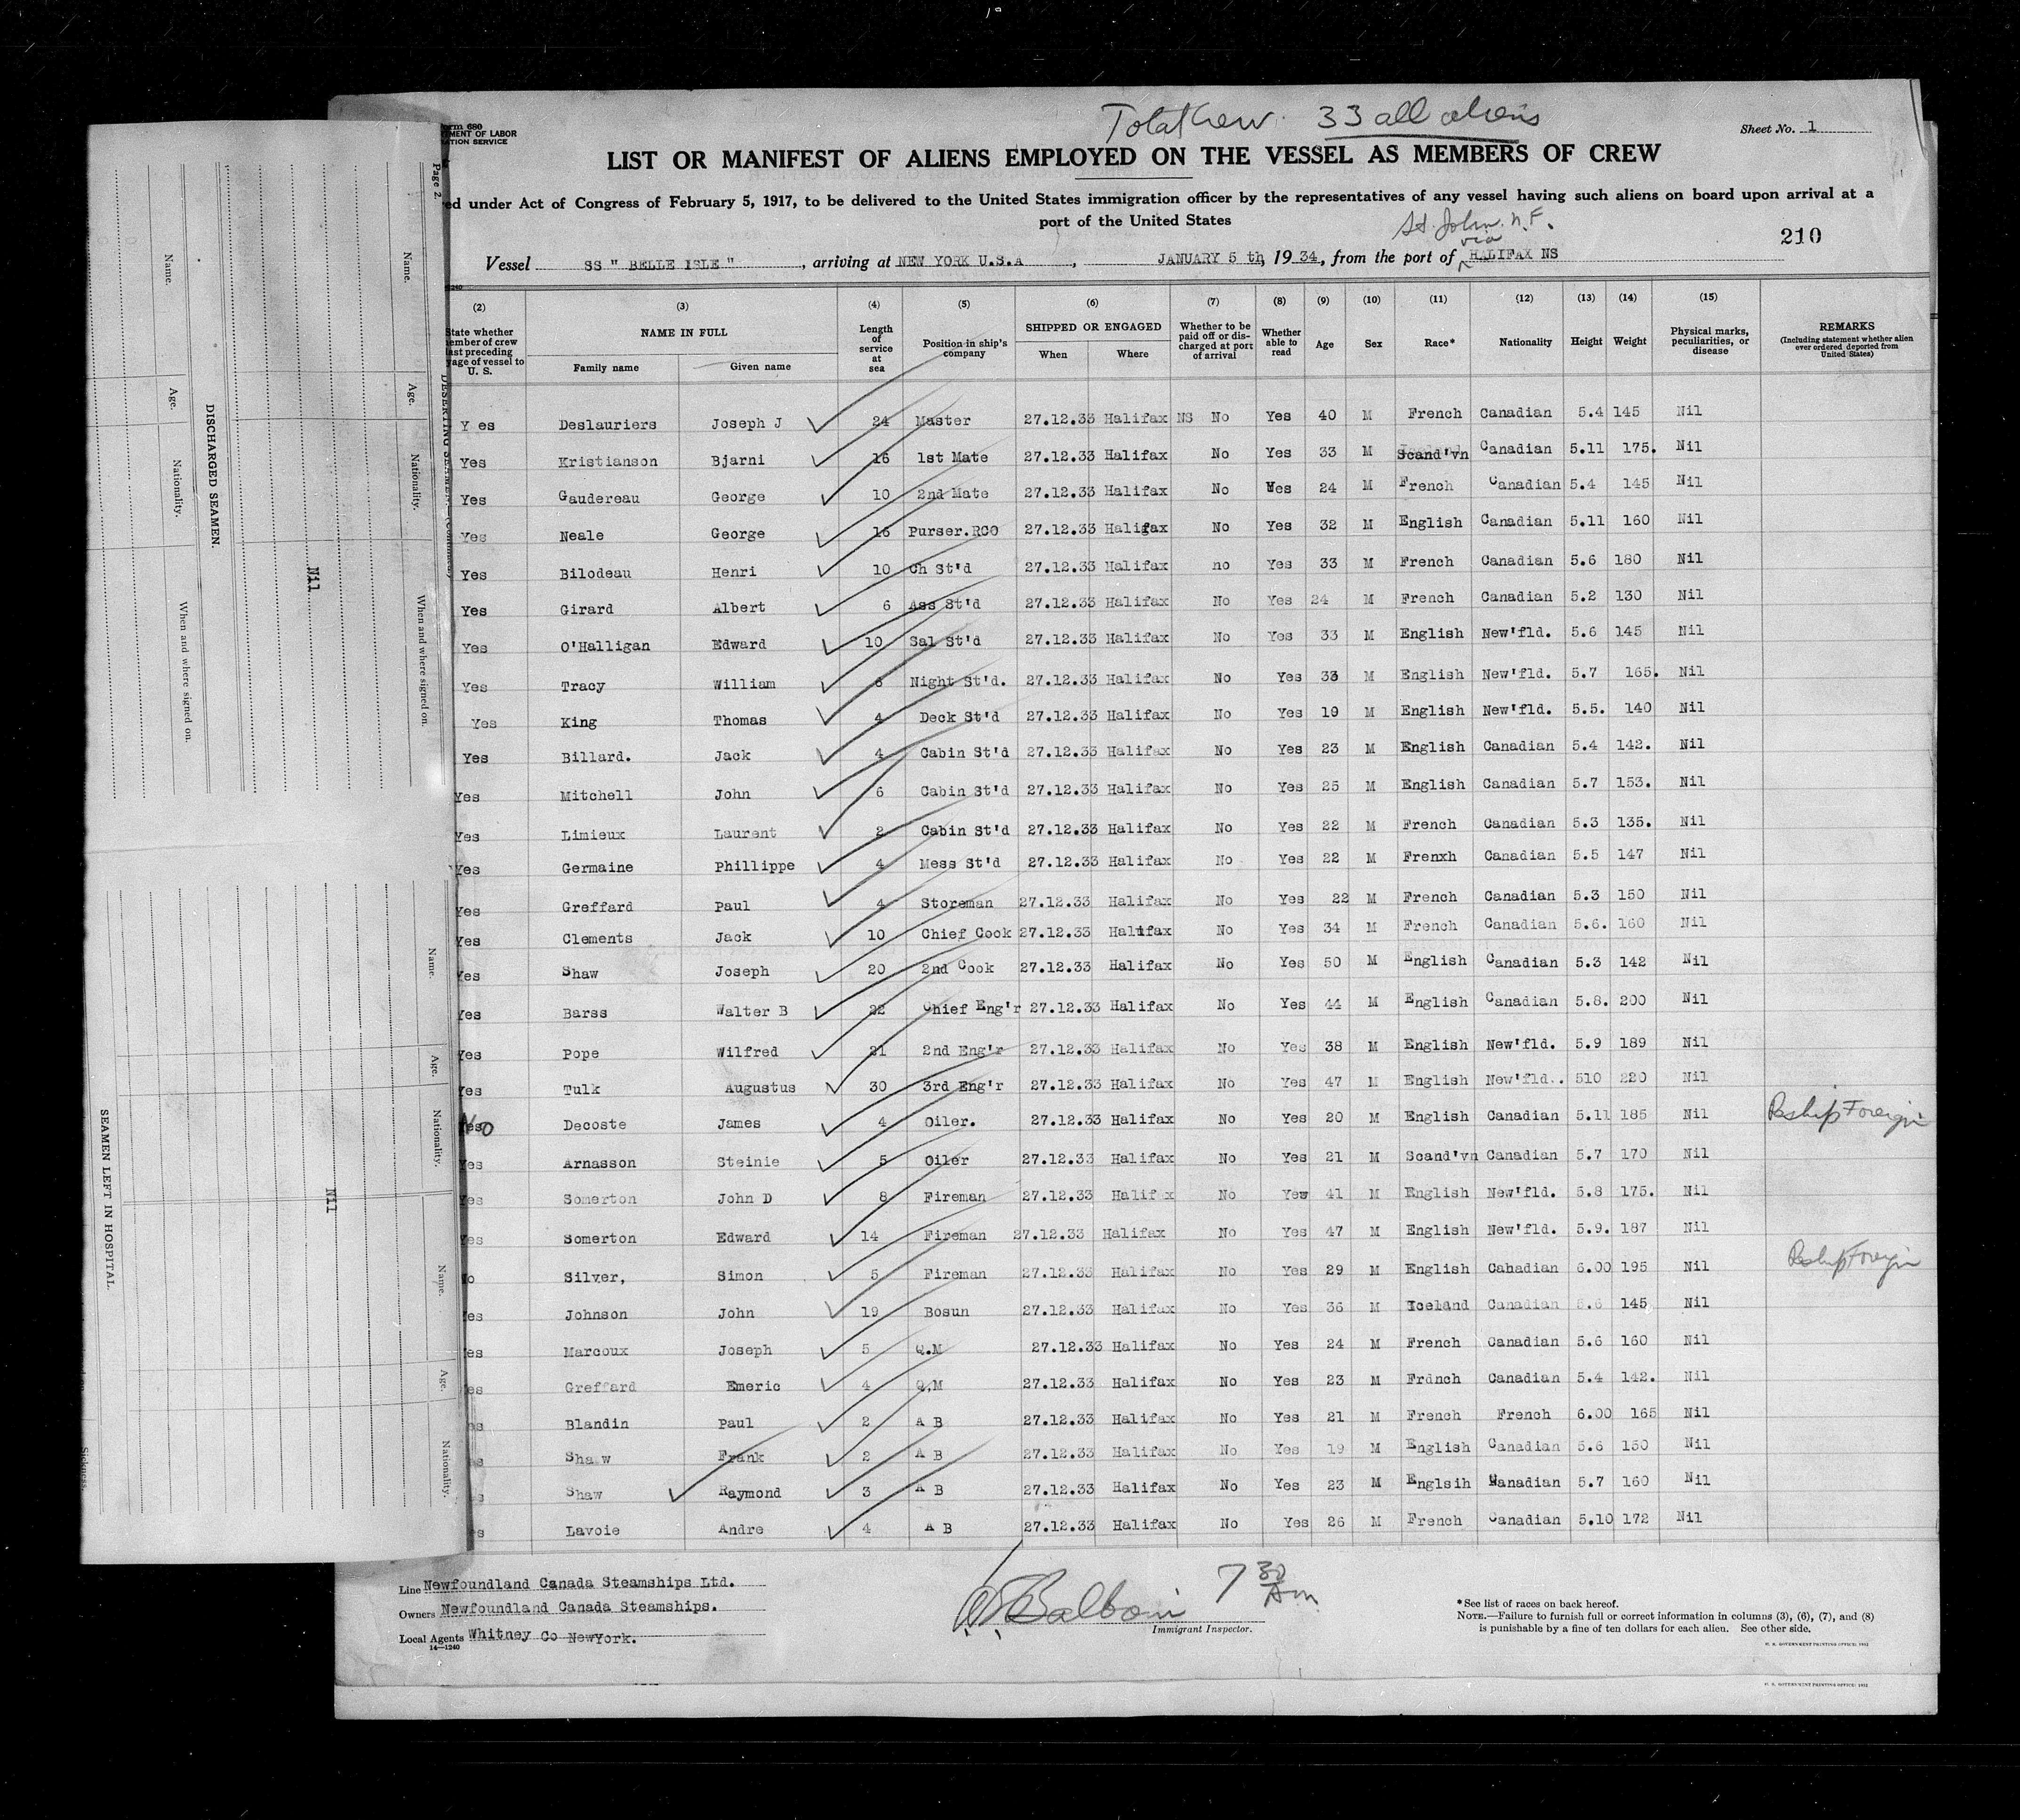 Total Crew. 33 all aliens
Form 680
TMENT OF LABOR
ATION SERVICE
Sheet No. 1
LIST OR MANIFEST OF ALIENS EMPLOYED ON THE VESSEL AS MEMBERS OF CREW
ed under Act of Congress of February 5, 1917, to be delivered to the United States immigration officer by the representatives of any vessel having such aliens on board upon arrival at a
port of the United States
St. John. N.F.
via
210
Vessel SS " BELLE ISLE ", arriving at NEW YORK U.S.A, JANUARY 5 th, 1934, from the port of HALIFAX NS
(2) (3) (4) (5) (6) (7) (8) (9) (10) (11) (12) (13) (14) (15)
State whether member of crew last preceding voyage of vessel to U. S. NAME IN FULL Family name Given name Length of service at sea Position in ship's company SHIPPED OR ENGAGED When Where Whether to be paid off or discharged at port of arrival Whether able to read Age Sex Race* Nationality Height Weight Physical marks, peculiarities, or disease REMARKS (Including statement whether alien ever ordered deported from United States)
Y es Deslauriers Joseph J 24 Master 27.12.33 Halifax NS No Yes 40 M French Canadian 5.4 145 Nil
Yes Kristianson Bjarni 16 1st Mate 27.12.33 Halifax No Yes 33 M Scand'vn Canadian 5.11 175. Nil
Yes Gaudereau George 10 2nd Mate 27.12.33 Halifax No Yes 24 M French Canadian 5.4 145 Nil
Yes Neale George 16 Purser.RCO 27.12.33 Halifax No Yes 32 M English Canadian 5.11 160 Nil
Yes Bilodeau Henri 10 Ch St'd 27.12.33 Halifax no Yes 33 M French Canadian 5.6 180 Nil
Yes Girard Albert 6 Ass St'd 27.12.33 Halifax No Yes 24 M French Canadian 5.2 130 Nil
Yes O'Halligan Edward 10 Sal St'd 27.12.33 Halifax No Yes 33 M English New'fld. 5.6 145 Nil
Yes Tracy William 6 Night St'd. 27.12.33 Halifax No Yes 33 M English New'fld. 5.7 165. Nil
Yes King Thomas 4 Deck St'd 27.12.33 Halifax No Yes 19 M English New'fld. 5.5. 140 Nil
Yes Billard. Jack 4 Cabin St'd 27.12.33 Halifax No Yes 23 M English Canadian 5.4 142. Nil
Yes Mitchell John 6 Cabin St'd 27.12.33 Halifax No Yes 25 M English Canadian 5.7 153. Nil
Yes Limieux Laurent 2 Cabin St'd 27.12.33 Halifax No Yes 22 M French Canadian 5.3 135. Nil
Yes Germaine Phillippe 4 Mess St'd 27.12.33 Halifax No Yes 22 M Frenxh Canadian 5.5 147 Nil
Yes Greffard Paul 4 Storeman 27.12.33 Halifax No Yes 22 M French Canadian 5.3 150 Nil
Yes Clements Jack 10 Chief Cook 27.12.33 Halifax No Yes 34 M French Canadian 5.6. 160 Nil
Yes Shaw Joseph 20 2nd Cook 27.12.33 Halifax No Yes 50 M English Canadian 5.3 142 Nil
Yes Barss Walter B 22 Chief Eng'r 27.12.33 Halifax No Yes 44 M English Canadian 5.8. 200 Nil
Yes Pope Wilfred 21 2nd Eng'r 27.12.33 Halifax No Yes 38 M English New'fld. 5.9 189 Nil
Yes Tulk Augustus 30 3rd Eng'r 27.12.33 Halifax No Yes 47 M English New'fld.. 510 220 Nil
No Decoste James 4 Oiler. 27.12.33 Halifax No Yes 20 M English Canadian 5.11 185 Nil Reship Foreign
Yes Arnasson Steinie 5 Oiler 27.12.33 Halifax No Yes 21 M Scand'vn Canadian 5.7 170 Nil
Yes Somerton John D 8 Fireman 27.12.33 Halifax No Yew 41 M English New'fld. 5.8 175. Nil
Yes Somerton Edward 14 Fireman 27.12.33 Halifax No Yes 47 M English New'fld. 5.9. 187 Nil
No Silver, Simon 5 Fireman 27.12.33 Halifax No Yes 29 M English Cahadian 6.00 195 Nil Reship Foreign
Yes Johnson John 19 Bosun 27.12.33 Halifax No Yes 36 M Iceland Canadian 5.6 145 Nil
es Marcoux Joseph 5 Q.M 27.12.33 Halifax No Yes 24 M French Canadian 5.6 160 Nil
es Greffard Emeric 4 Q,M 27.12.33 Halifax No Yes 23 M Frdnch Canadian 5.4 142. Nil
es Blandin Paul 2 A B 27.12.33 Halifax No Yes 21 M French French 6.00 165 Nil
es Sha w Frank 2 A B 27.12.33 Halifax No Yes 19 M English Canadian 5.6 150 Nil
s Shaw Raymond 3 A B 27.12.33 Halifax No Yes 23 M Englsih Canadian 5.7 160 Nil
es Lavoie Andre 4 A B 27.12.33 Halifax No Yes 26 M French Canadian 5.10 172 Nil
Line Newfoundland Canada Steamships Ltd.
Owners Newfoundland Canada Steamships.
Local Agents Whitney Co NewYork.
14—1240
7 30 Am
Immigrant Inspector.
*See list of races on back hereof.
NOTE.—Failure to furnish full or correct information in columns (3), (6), (7), and (8)
is punishable by a fine of ten dollars for each alien. See other side.
U. S. GOVERNMENT PRINTING OFFICE: 1932
U. S. GOVERNMENT PRINTING OFFICE: 1932
Page 2.
DESERTING SEAMEN
Name. Age. Nationality. When and where signed on.
Nil
DISCHARGED SEAMEN.
Name. Age. Nationality. When and where signed on.
Name. Age. Nationality.
Nil
Name. Age. Nationality.
SEAMEN LEFT IN HOSPITAL.
Sickness.